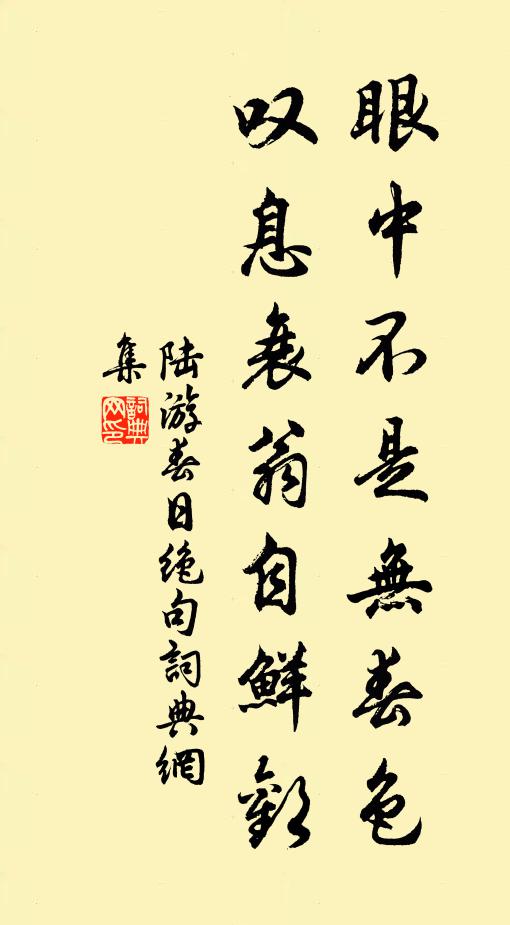 眼中不是無春色
叹息衰翁自鮮歡
陸游春日绝句詞典網
集
詞典
网印